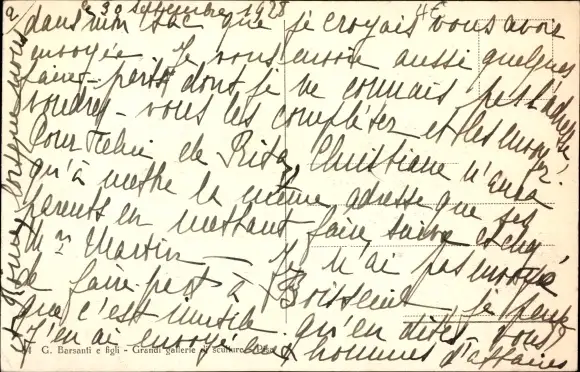 2)
30 septembre 1928
4F
dans mon sac que je croyais vous avoir
envoyée. Je vous envoie aussi quelques
faire-parts dont je ne connais pas l'adresse
voudrez-vous les compléter et les envoyer.
Pour celui de Rita, Christiane n'aura
qu'à mettre la même adresse que ses
parents en mettant faire suivre et chez
Mr Martin — Je n'ai pas envoyé
de faire-part à Boisseuil je pense
que c'est inutile qu'en dites vous
J'en ai envoyé les hommes d'affaires
G. Barsanti e figli - Grandi gallerie di sculture - Pisa